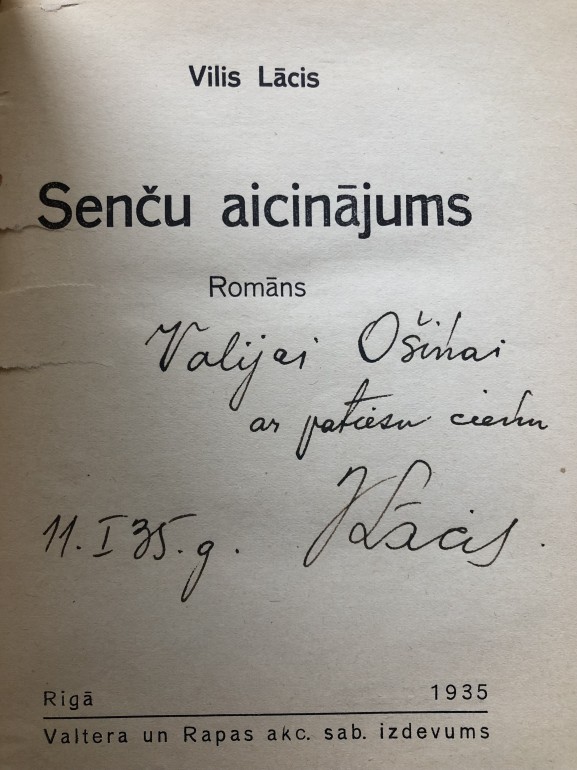 Vilis Lācis
Senču aicinājums
Romāns
Valijai Ošiņai
ar patiesu cieņu
VLācis.
11. I 35. g.
Rigā 1935
Valtera un Rapas akc. sab. izdevums